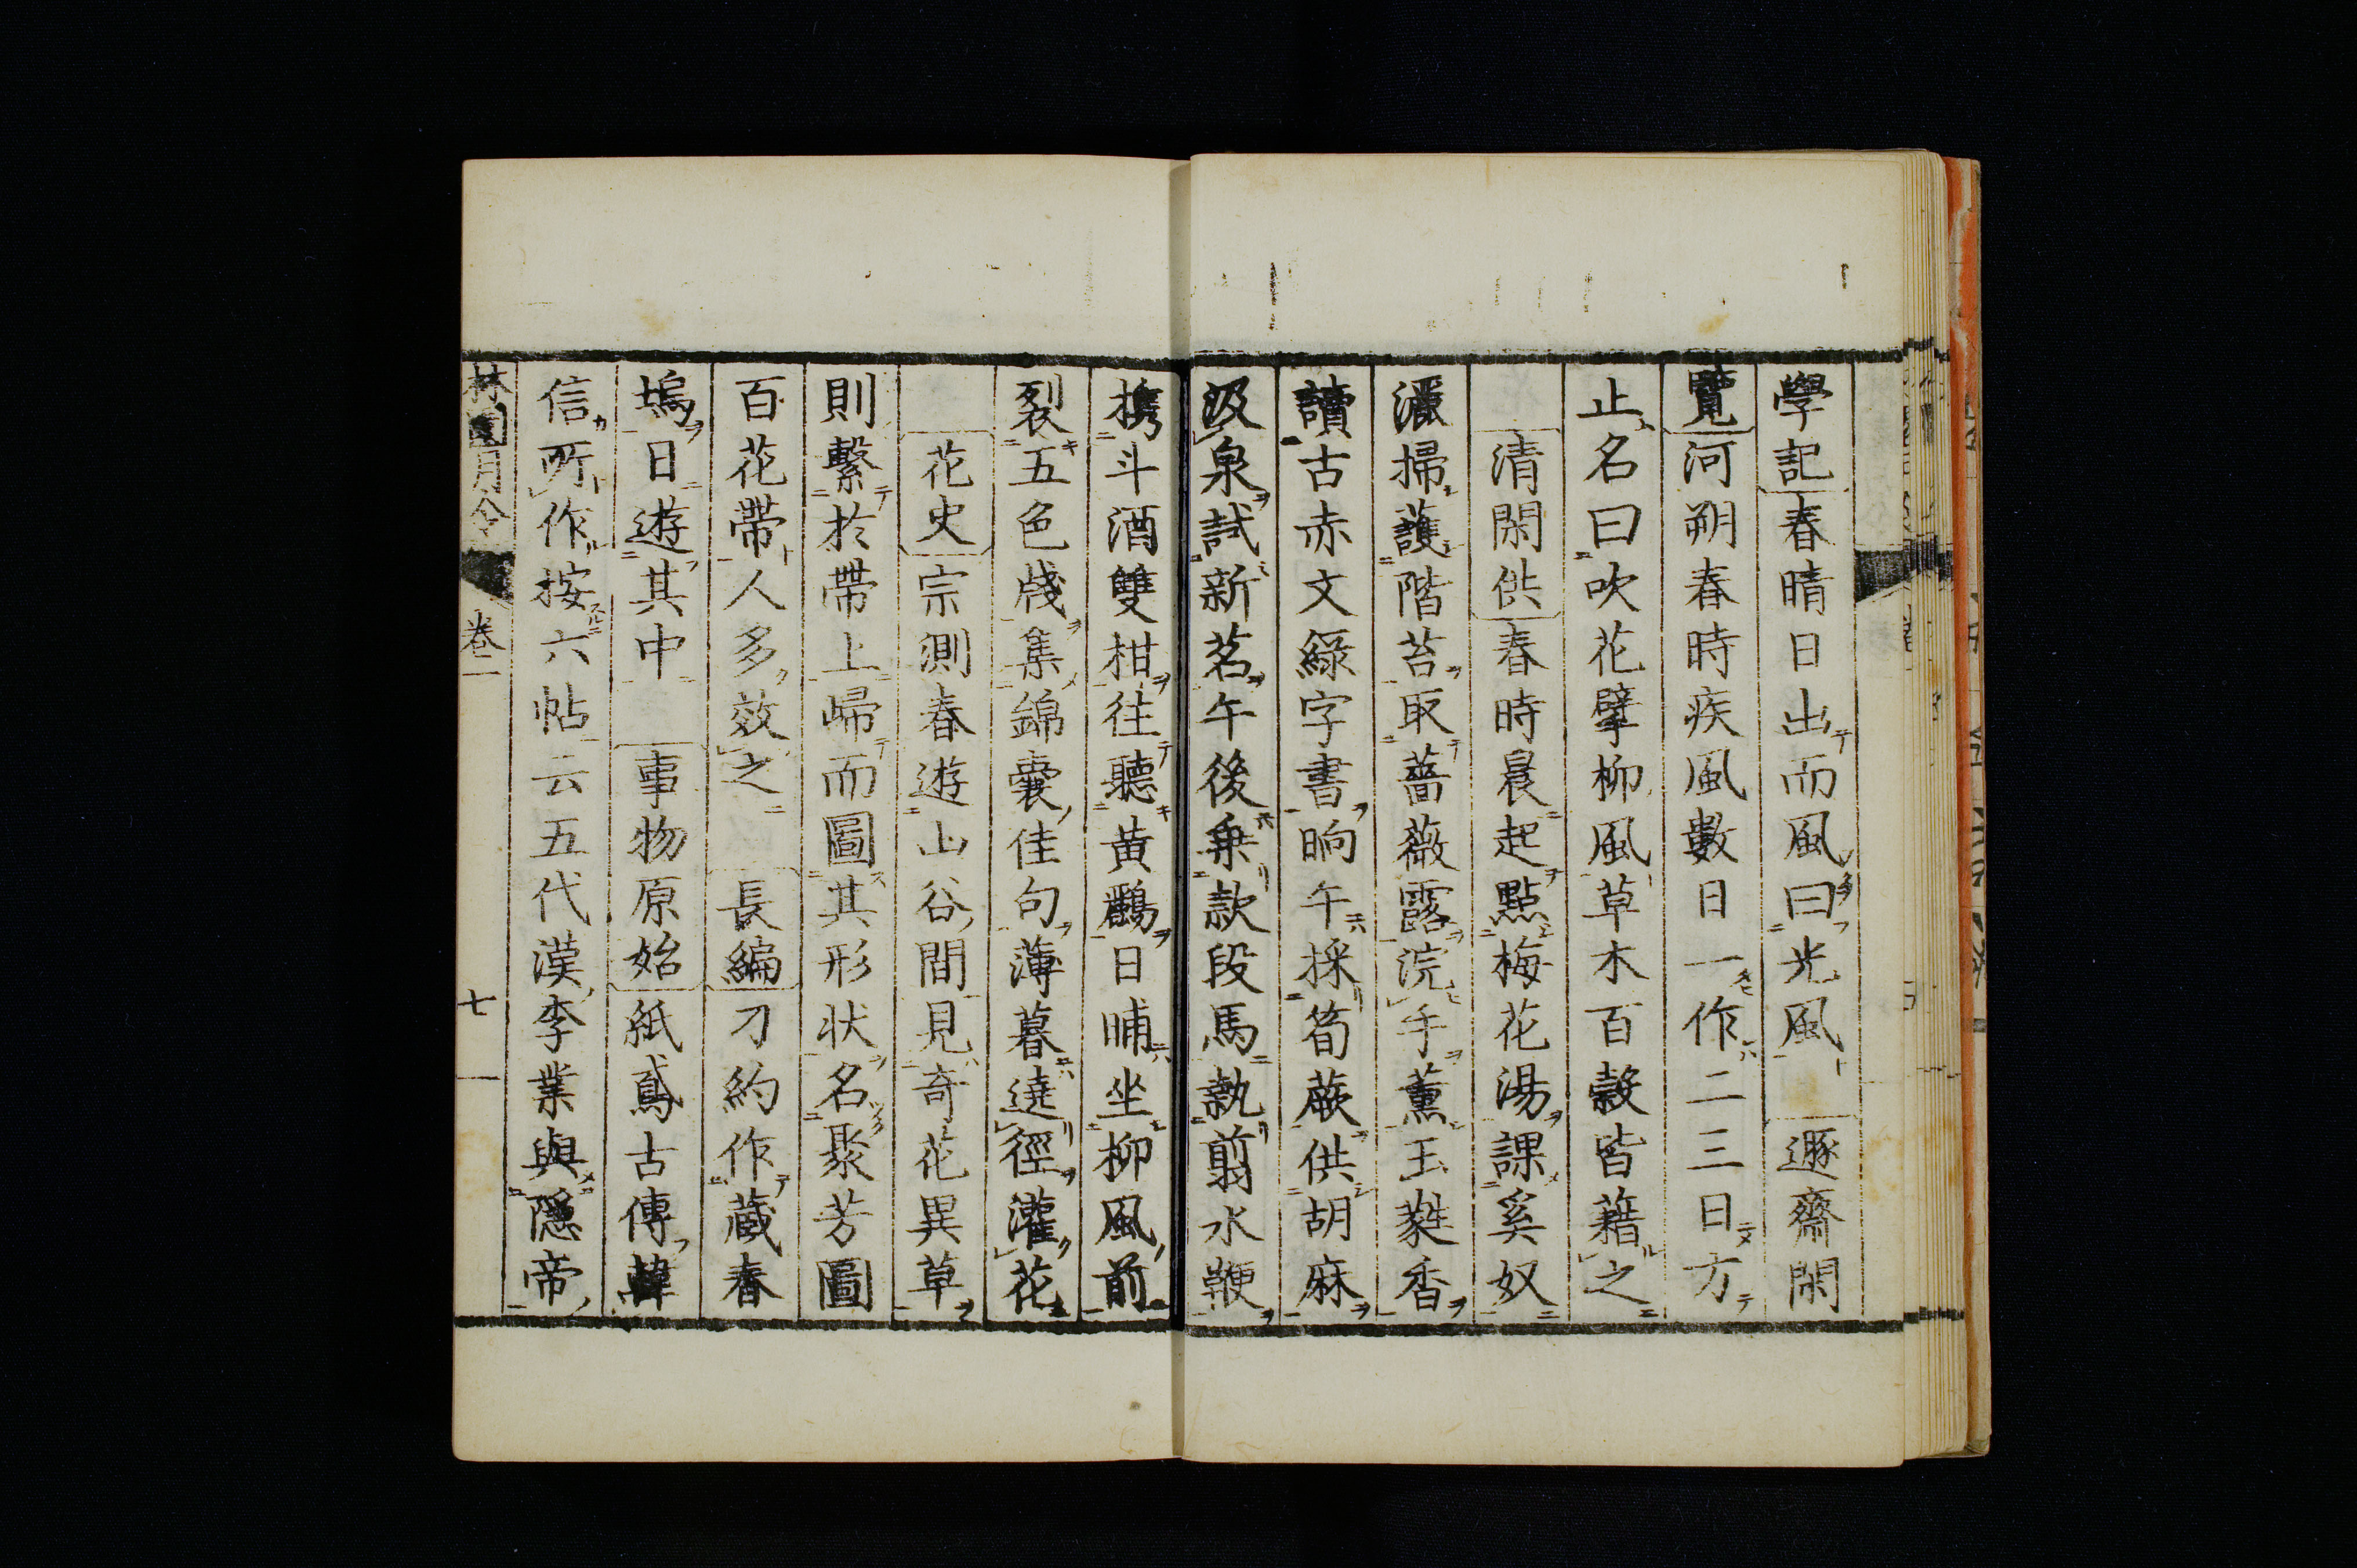 學記春晴日出而風曰光風 遯齋閑
覽河朔春時疾風數日一作二三日方
止名曰吹花擘柳風草木百穀皆藉之
清閑供春時晨起點梅花湯課奚奴
灑掃護階苔取薔薇露浣手薰玉蕤香
讀古赤文綠字書晌午採筍蕨供胡麻
汲泉試新茗午後乗款段馬執剪水鞭
携斗酒雙柑往聽黄鸝日晡坐柳風前
裂五色牋集錦囊佳句薄暮遶徑灌花
花史宗測春遊山谷間見奇花異草
則繫於帶上歸而圖其形状名聚芳圖
百花帶人多效之 長編刁約作蔵春
塢日遊其中 事物原始紙鳶古傳韓
信所作按六帖云五代漢李業與隱帝
林園月令 卷二 七